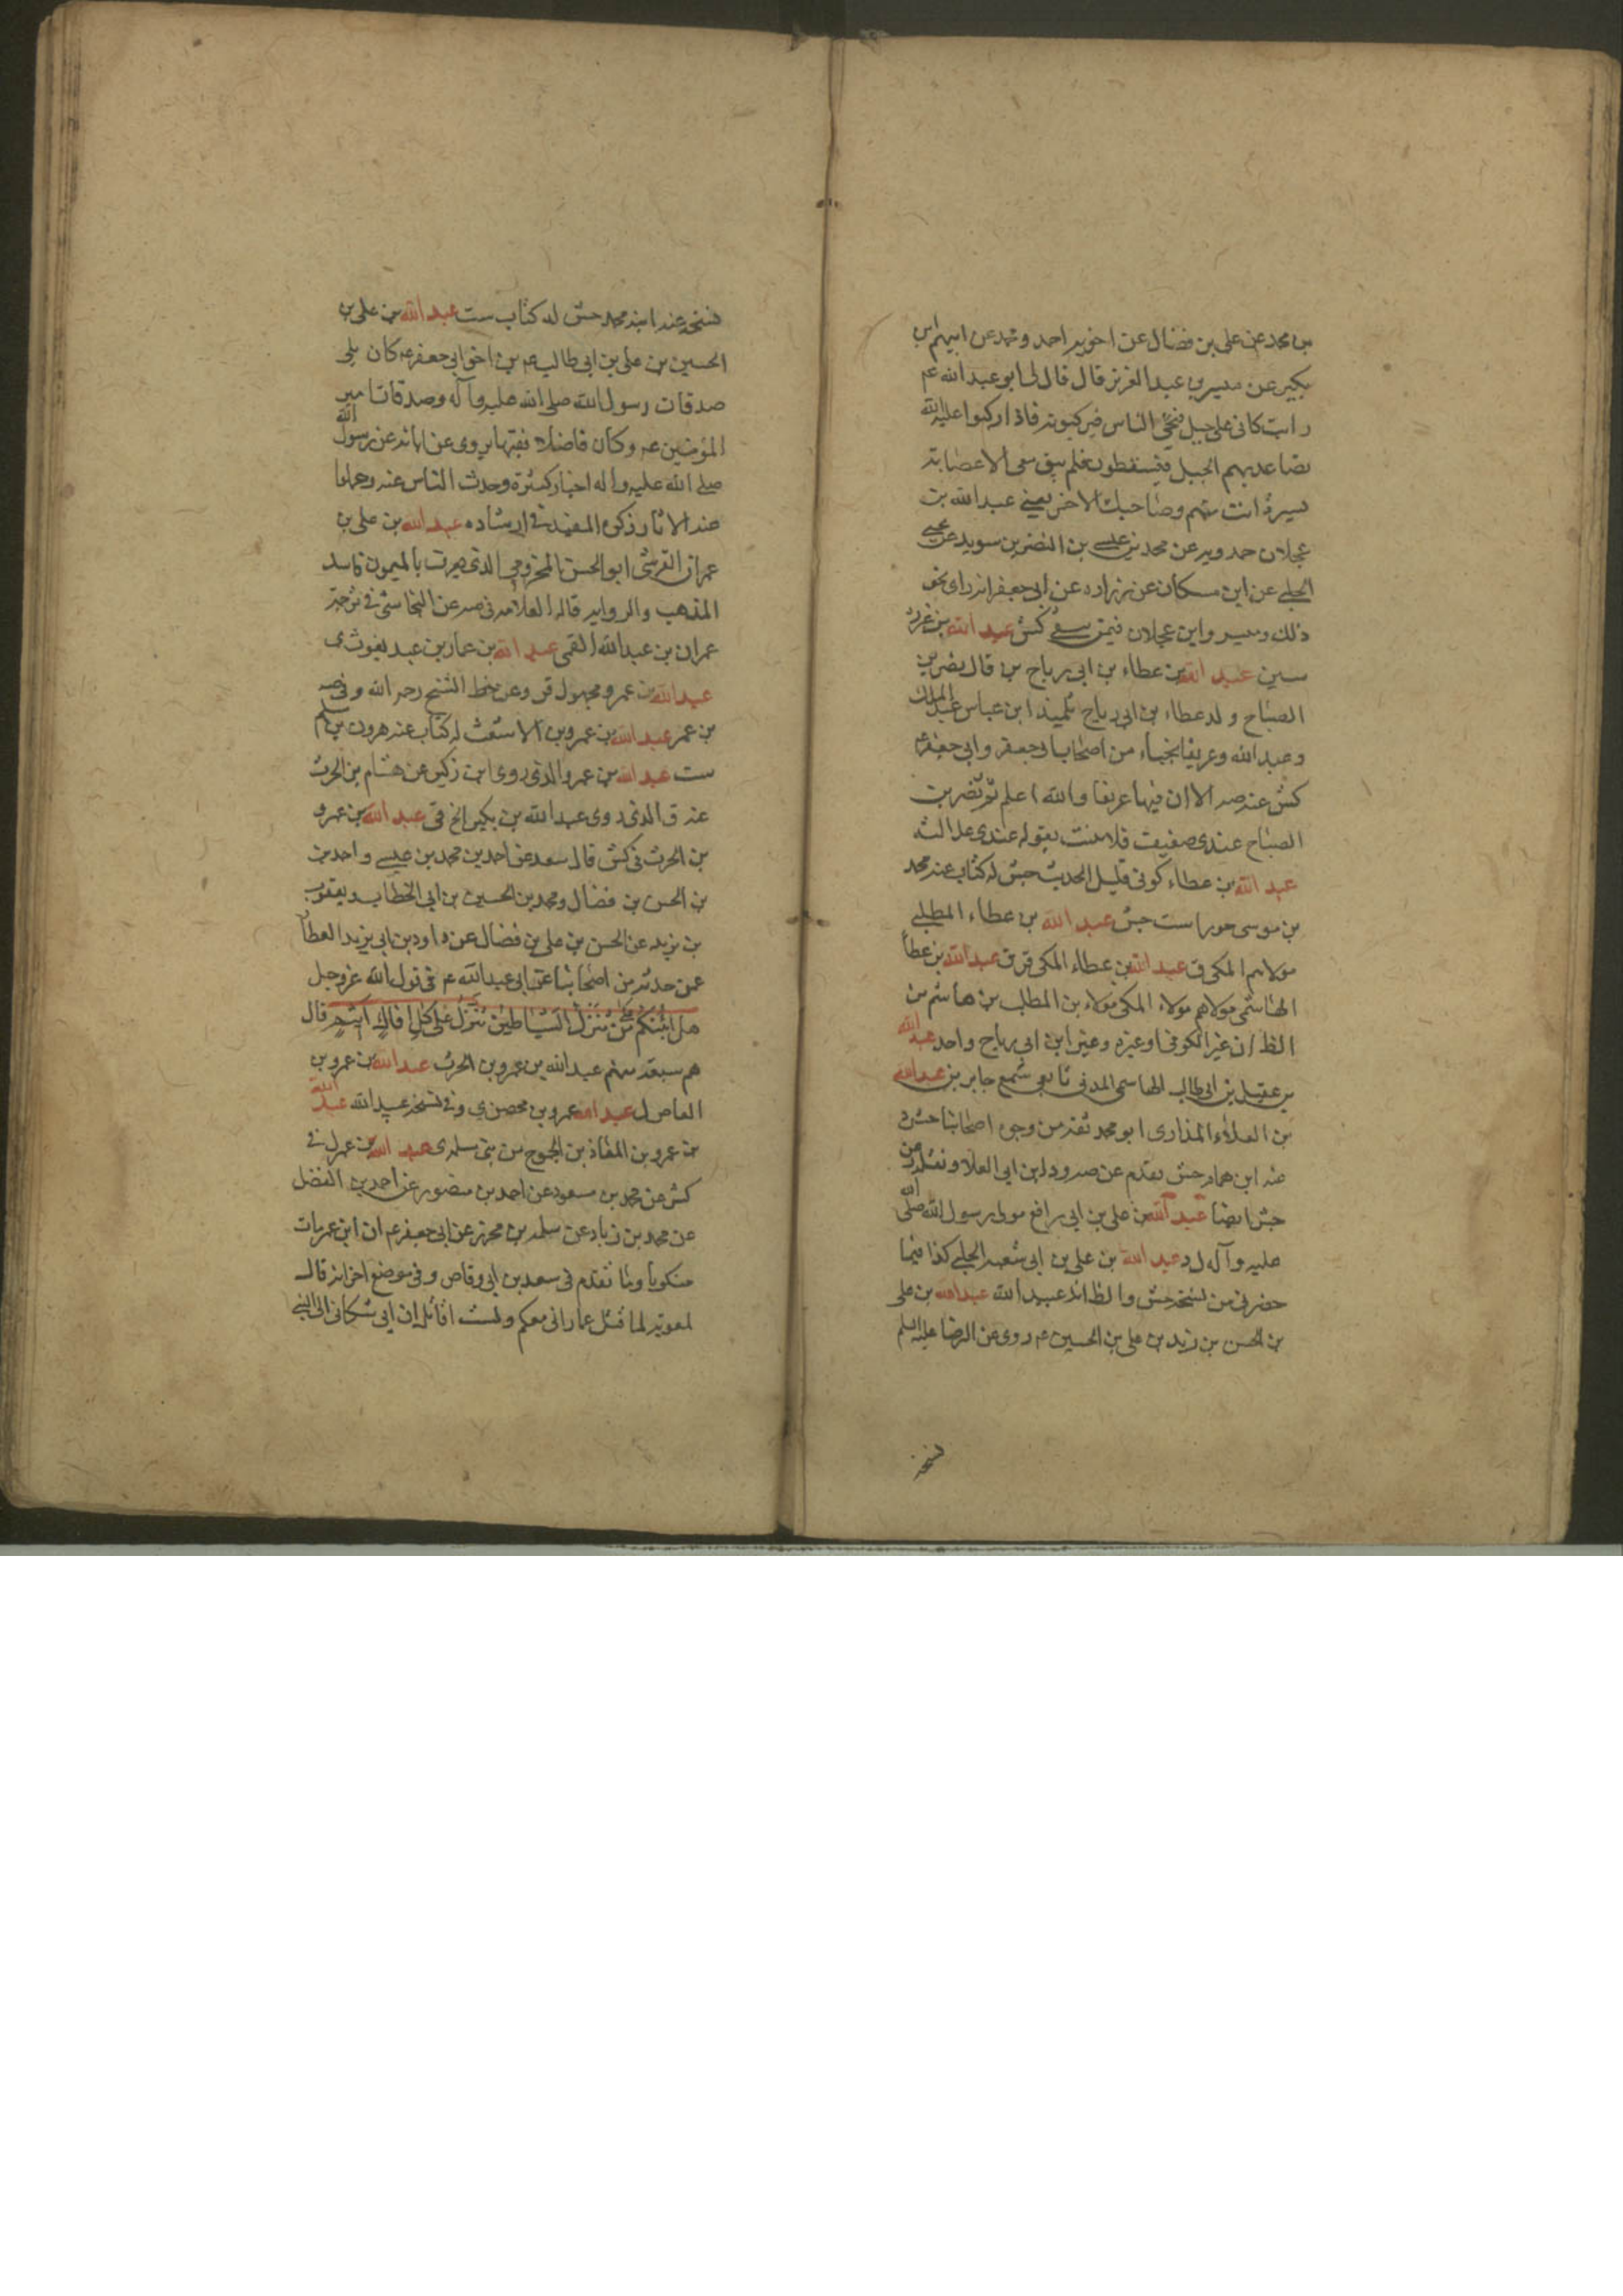 بن محمد عن علی بن فضال عن اخویه احمد و محمد عن ابیهم ابن
بکیر عن میسر بن عبد العزیز قال قال لی ابو عبد الله عم
رایت کانی علی جبل فیجئ الناس فیرکبونه فاذا رکبوا علیه
تصاعد بهم الجبل فیتساقطون فلم یبق معی الا عصابة
یسیرة انت منهم وصاحبک الاخر یعنی عبد الله بن
عجلان حمدویه عن محمد بن عیسی بن النضر بن سوید عن یحیی
الحلبی عن ابن مسکان عن زراره عن ابی جعفر انه رای نحو
ذلک ومیسر وابن عجلان فیمن کش عبد الله بن
سین عبد الله بن عطاء بن ابی رباح من قال نصر بن
الصباح ولد عطاء بن ابی رباح تلمیذ ابن عباس عبد الملک
وعبد الله وعریفا نجباء من اصحاب ابی جعفر وابی جعفر عم
کش عنه صه الا ان فیها عریفا والله اعلم ثم نضر بن
الصباح عندی ضعیف فلا یثبت بقوله عندی عدالته
عبد الله بن عطاء کوفی قلیل الحدیث جش له کتاب عنه محمد
بن موسی حورا ست جش عبد الله بن عطاء المطلبی
مولاهم المکی ق عبد الله بن عطاء المکی قر ق عبد الله بن عطا
الهاشمی مولاهم مولاه المکی مولاء بن المطلب بن هاشم من
الظ ان غیر الکوفی اوغیره وغیر ابن ابی رباح واحد عبد الله
بن عقیل بن ابی طالب الهاشمی المدنی تابعی سمع جابر بن عبد الله
بن العلاء المذاری ابو محمد ثقه من وجوه اصحابنا جش
عنه ابن همام جش تقدم عن صه ود ابن ابی العلا ونقله من
جش ایضا عبد الله بن علی بن ابی رافع مولی رسول الله صلی الله
علیه وآله ل د عبد الله بن علی بن ابی شعبه الحلبی کذا فیما
حضرنی من نسخه جش والظ انه عبید الله عبد الله بن علی
بن الحسن بن زید بن علی بن الحسین عم روی عن الرضا علیه السلم
نسخه
نسخه عنه ابنه محمد جش له کتاب ست عبد الله بن علی بن
الحسین بن علی بن ابی طالب عم بن اخو ابی جعفر عم کان یلی
صدقات رسول الله صلی الله علیه وآله وصدقات امیر
المؤمنین عم وکان فاضلا فقیها یروی عن ابائه عن رسول الله
صلی الله علیه وآله اخبار کثیرة وحدث الناس عنه وحملوا
عنه الاثار ذکره المفید فی ارشاده عبد الله بن علی بن
عمران القرشی ابو الحسن المخزومی الذی یعرف بالمیمون فاسد
المذهب والروایه قاله العلامه فی صه عن النجاشی فی ترجمة
عمران بن عبد الله القمی عبد الله بن عمار بن عبد یغوث ی
عبد الله بن عمرو مجهول قر وعن خط الشیخ رحمه الله وفی صه
بن عمر عبد الله بن عمرو بن الاشعث له کتاب عنه هرون بن مسلم
ست عبد الله بن عمرو الذی روی ابن زکیر عن هشام بن الحرث
عنه ق الذی روی عبد الله بن بکیر الخ قی عبد الله بن عمرو
بن الحرث فی کش قال سعد عن احمد بن محمد بن عیسی واحمد بن
بن الحسن بن فضال ومحمد بن الحسین بن ابی الخطاب ویعقوب
بن یزید عن الحسن بن علی بن فضال عن داود بن ابی یزید العطا
عمن حدثه من اصحابنا عن ابی عبد الله عم فی قول الله عز وجل
هل انبئکم علی من تنزل الشیاطین تنزل علی کل افاک اثیم قال
هم سبعه منهم عبد الله بن عمرو بن الحرث عبد الله بن عمرو بن
العاص ل عبد الله عمرو بن محصن ی وفی نسخه عبید الله عبد الله
بن عمرو بن المعاذ بن الجموح من بنی سلمه ی عبد الله بن عمر ل فی
کش عن محمد بن مسعود عن احمد بن منصور عن احمد بن الفضل
عن محمد بن زیاد عن سلمه بن محرز عن ابی جعفر عم ان ابن عمر مات
منکوبا ومما تقدم فی سعد بن ابی وقاص وفی موضع اخر انه قال
لمعویه لما قتل عمار انی معکم ولست اقاتل ان ابی شکانی الی النبی